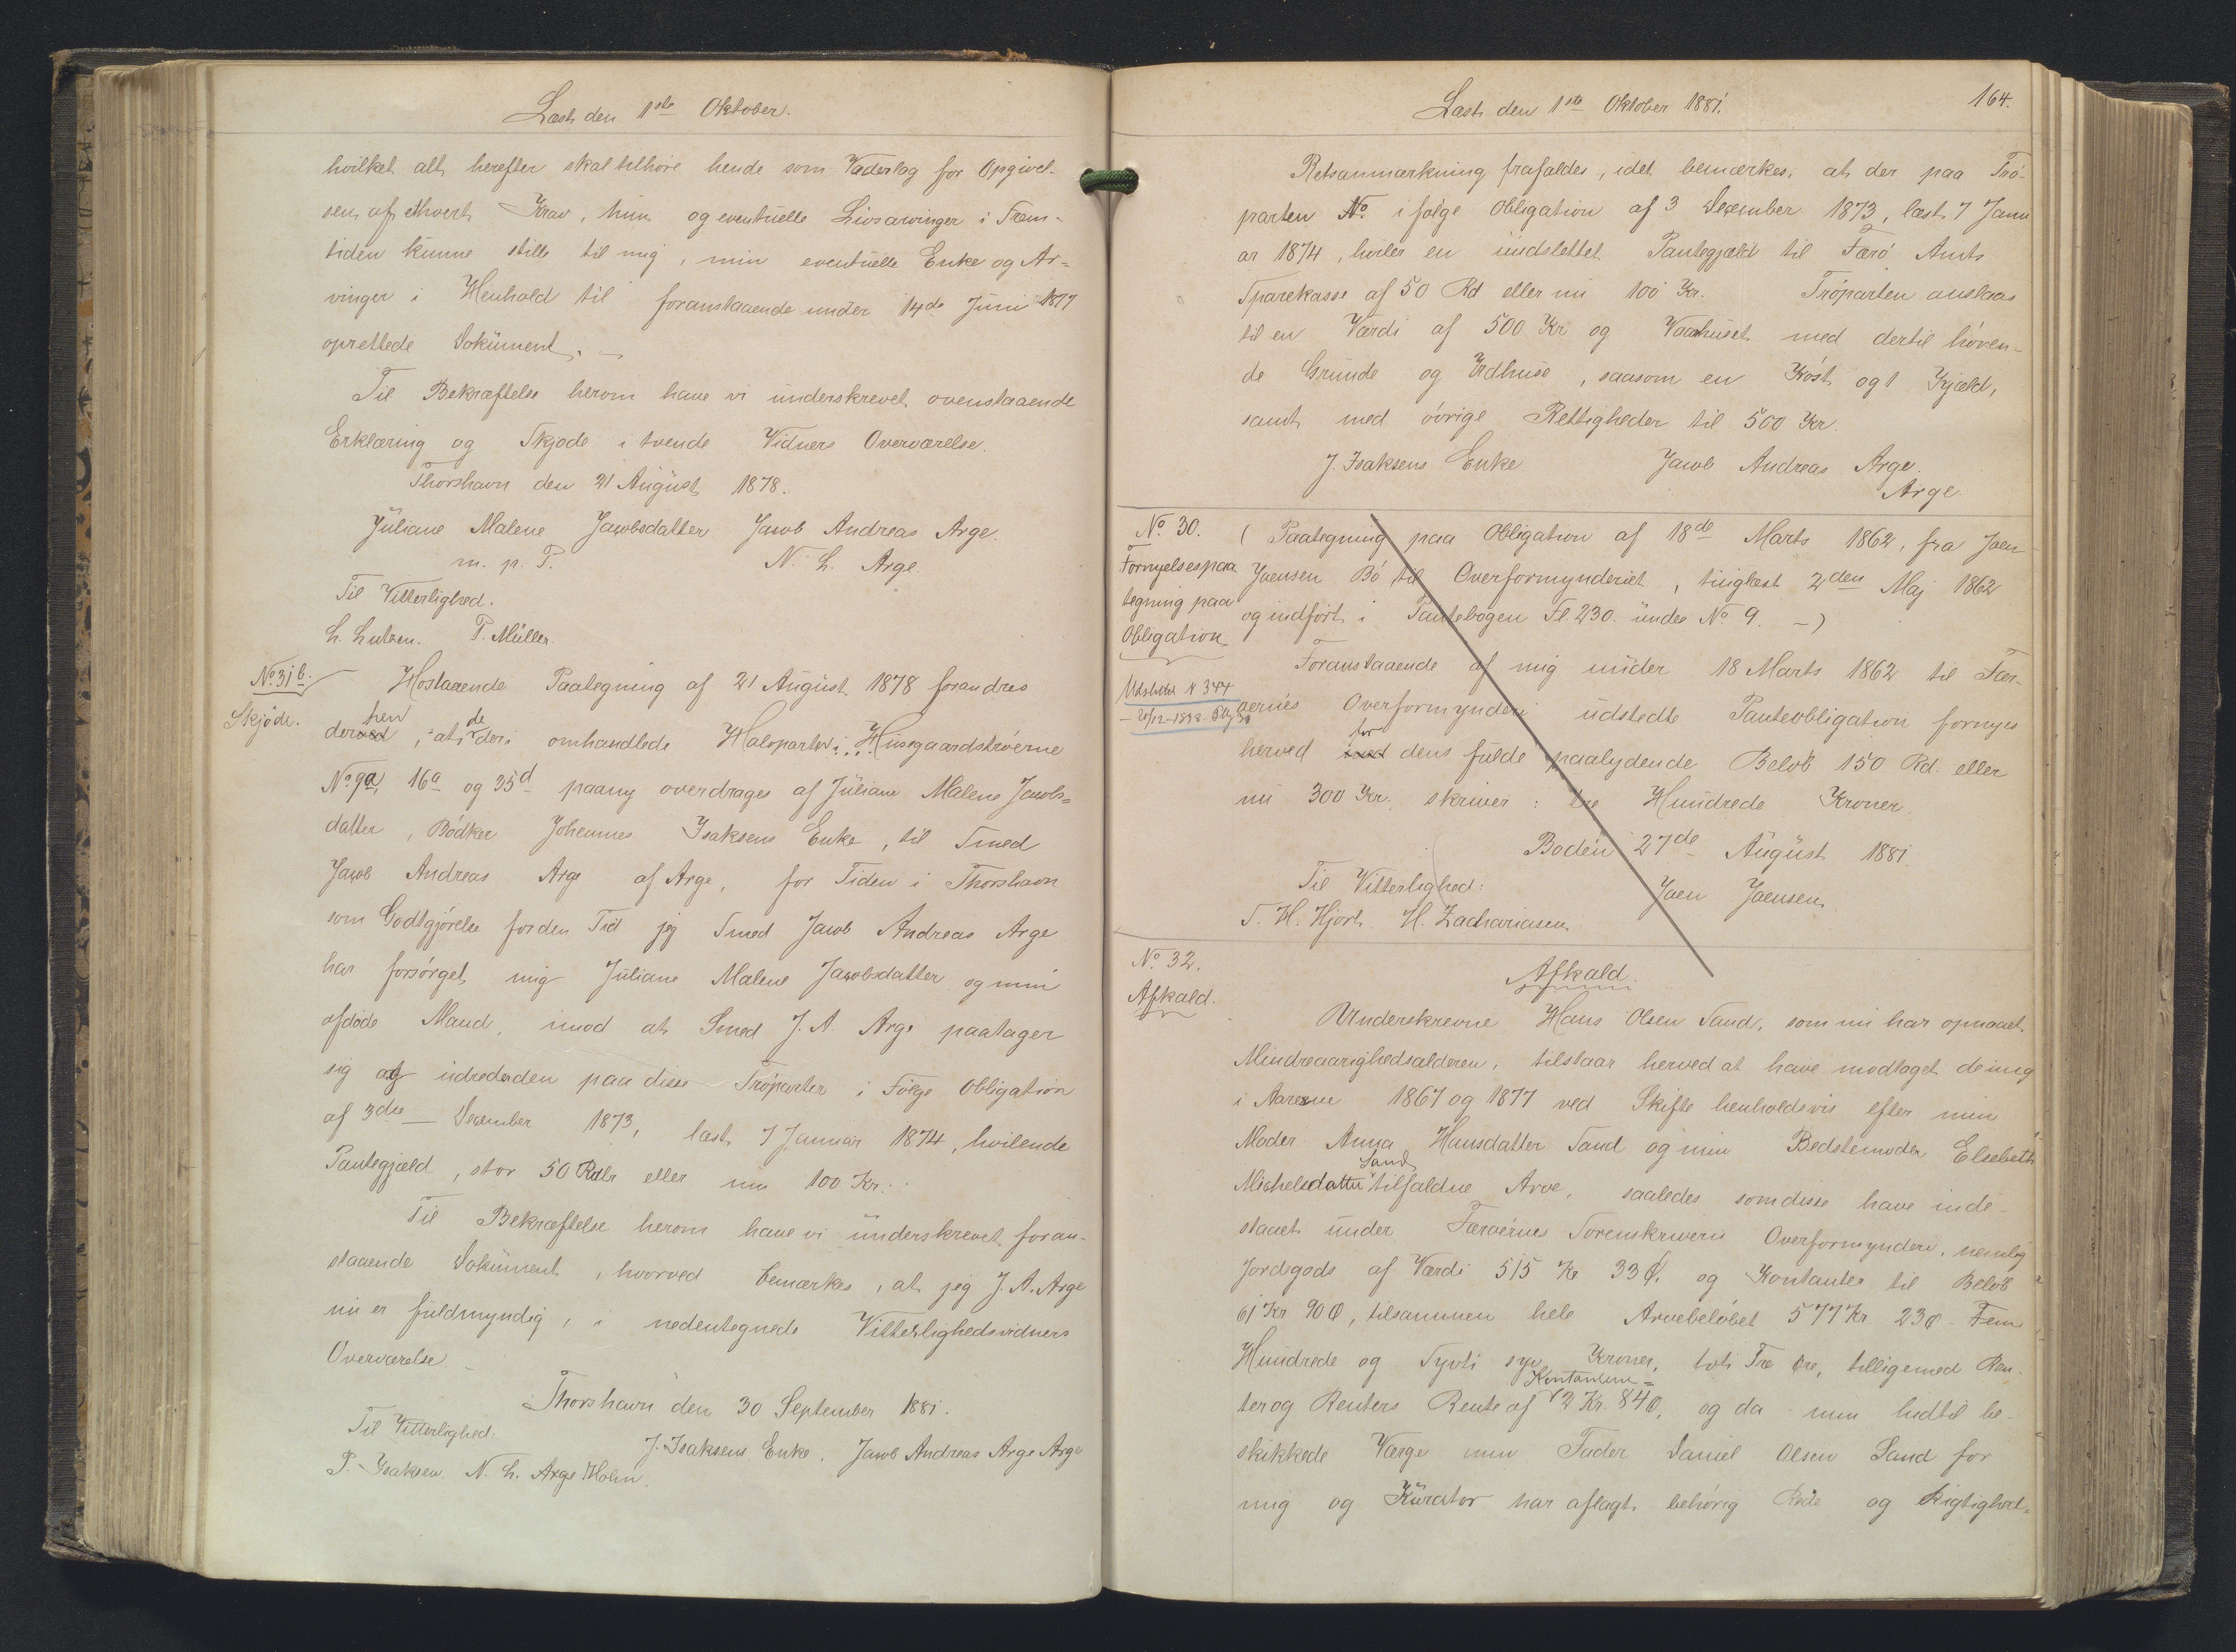 Læst den 1ste Oktober.
hvilket alt herefter skal tilhøre hende som Vederlag for Opgivel-
sen af ethvert Krav, hun og eventuelle Livsarvinger i Frem-
tiden kunne stille til mig, min eventuelle Enke og Ar-
vinger i Henhold til foranstaaende under 14de Juni 1877
oprettede Dokument. —
Til Bekræftelse herom have vi underskrevet ovenstaaende
Erklæring og Skjøde i tvende Vidners Overværelse.
Thorshavn den 21 August 1878.
Juliane Malene Jacobsdatter Jacob Andreas Arge.
m. p. P. N. L. Arge.
Til Vitterlighed.
L. Lutzen. P. Müller.
No. 31b. Hoslaaende Paategning af 21 August 1878 forandres
Skjøde.
derhen, at de deri omhandlede Halvparter i Husegaardstrøerne
No. 9a, 16a og 35d paany overdrages af Juliane Malene Jacobs-
datter, Bødker Johannes Isaksens Enke, til Smed
Jacob Andreas Arge af Arge, for Tiden i Thorshavn
som Godtgjørelse for den Tid jeg Smed Jacob Andreas Arge
har forsørget mig Juliane Malene Jacobsdatter og min
afdøde Mand, imod at Smed J. A. Arge paatager
sig at udrede den paa disse Trøparter i Følge Obligation
af 3die December 1873, læst 7 Januar 1874, hvilende
Pantegjæld, stor 50 Rdlr eller nu 100 Kr.
Til Bekræftelse herom have vi underskrevet foran-
staaende Dokument, hvorved bemærkes, at jeg J. A. Arge
nu er fuldmyndig, i nedentegnede Vitterlighedsvidners
Overværelse. —
Thorshavn den 30 September 1881.
Til Vitterlighed: J. Isaksens Enke. Jacob Andreas Arge Arge
P. Isaksen. N. L. Arge Holm.
Læst den 1ste Oktober 1881. 164.
Retsanmærkning frafaldes, idet bemærkes, at der paa Trø-
parten No. ifølge Obligation af 3 December 1873, læst 7 Janu
ar 1874, hviler en uudslettet Pantegjæld til Færø Amts
Sparekasse af 50 Rd eller nu 100 Kr. Trøparten anslaas
til en Værdi af 500 Kr og Vaahuset med dertil høren-
de Grunde og Udhuse, saasom en Kost og 1 Kjæld,
samt med øvrige Rettigheder til 500 Kr.
J. Isaksens Enke Jacob Andreas Arge.
Arge.
No. 30. (Paategning paa Obligation af 18de Marts 1862, fra Joen
Fornyelsespaa Joensen Bø til Overformynderiet, tinglæst 2den Maj 1862
tegning paa og indført i Pantebogen Fl. 230. under No 9. —)
Obligation
Foranstaaende af mig under 18 Marts 1862 til Fær-
Udslettet N 344
øernes Overformynderi udstedte Panteobligation fornyes
herved for dens fulde paalydende Beløb 150 Rd. eller
nu 300 Kr. skriver: tre Hundrede Kroner.
Boden 27de August 1881.
Til Vitterlighed: Joen Joensen
T. H. Hjort. H. Zachariasen.
No. 32. Afkald.
Afkald.
Underskrevne Hans Olsen Sand, som nu har opnaaet
Mindreaarighedsalderen, tilstaar herved at have modtaget de mig
i Aarene 1867 og 1877 ved Skifte henholdsvis efter min
Moder Anna Hansdatter Sand og min Bedstemoder Elsebeth
Michelsdatter Sand tilfaldne Arve, saaledes som disse have inde-
staaet under Færøernes Sorenskriveris Overformynderi, nemlig
Jordgods af Værdi 515 Kr 33 Ø. og Kontanter til Beløb
61 Kr 90 Ø, tilsammen hele Arvebeløbet 577 Kr 23 Ø - Fem
Hundrede og Syvti syv Kroner, toti Tre Øre, tilligemed Ren-
ter og Renters Rente af Kontanterne = 2 Kr. 84 Ø. og da min hidtil be-
skikkede Værge min Fader Daniel Olsen Sand for
mig og Kurator har aflagt behørig Rede og Rigtighed-